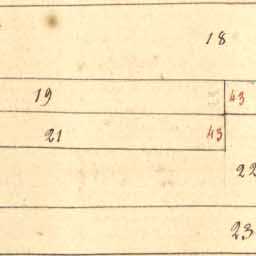 18
19 43
21 43
22
23